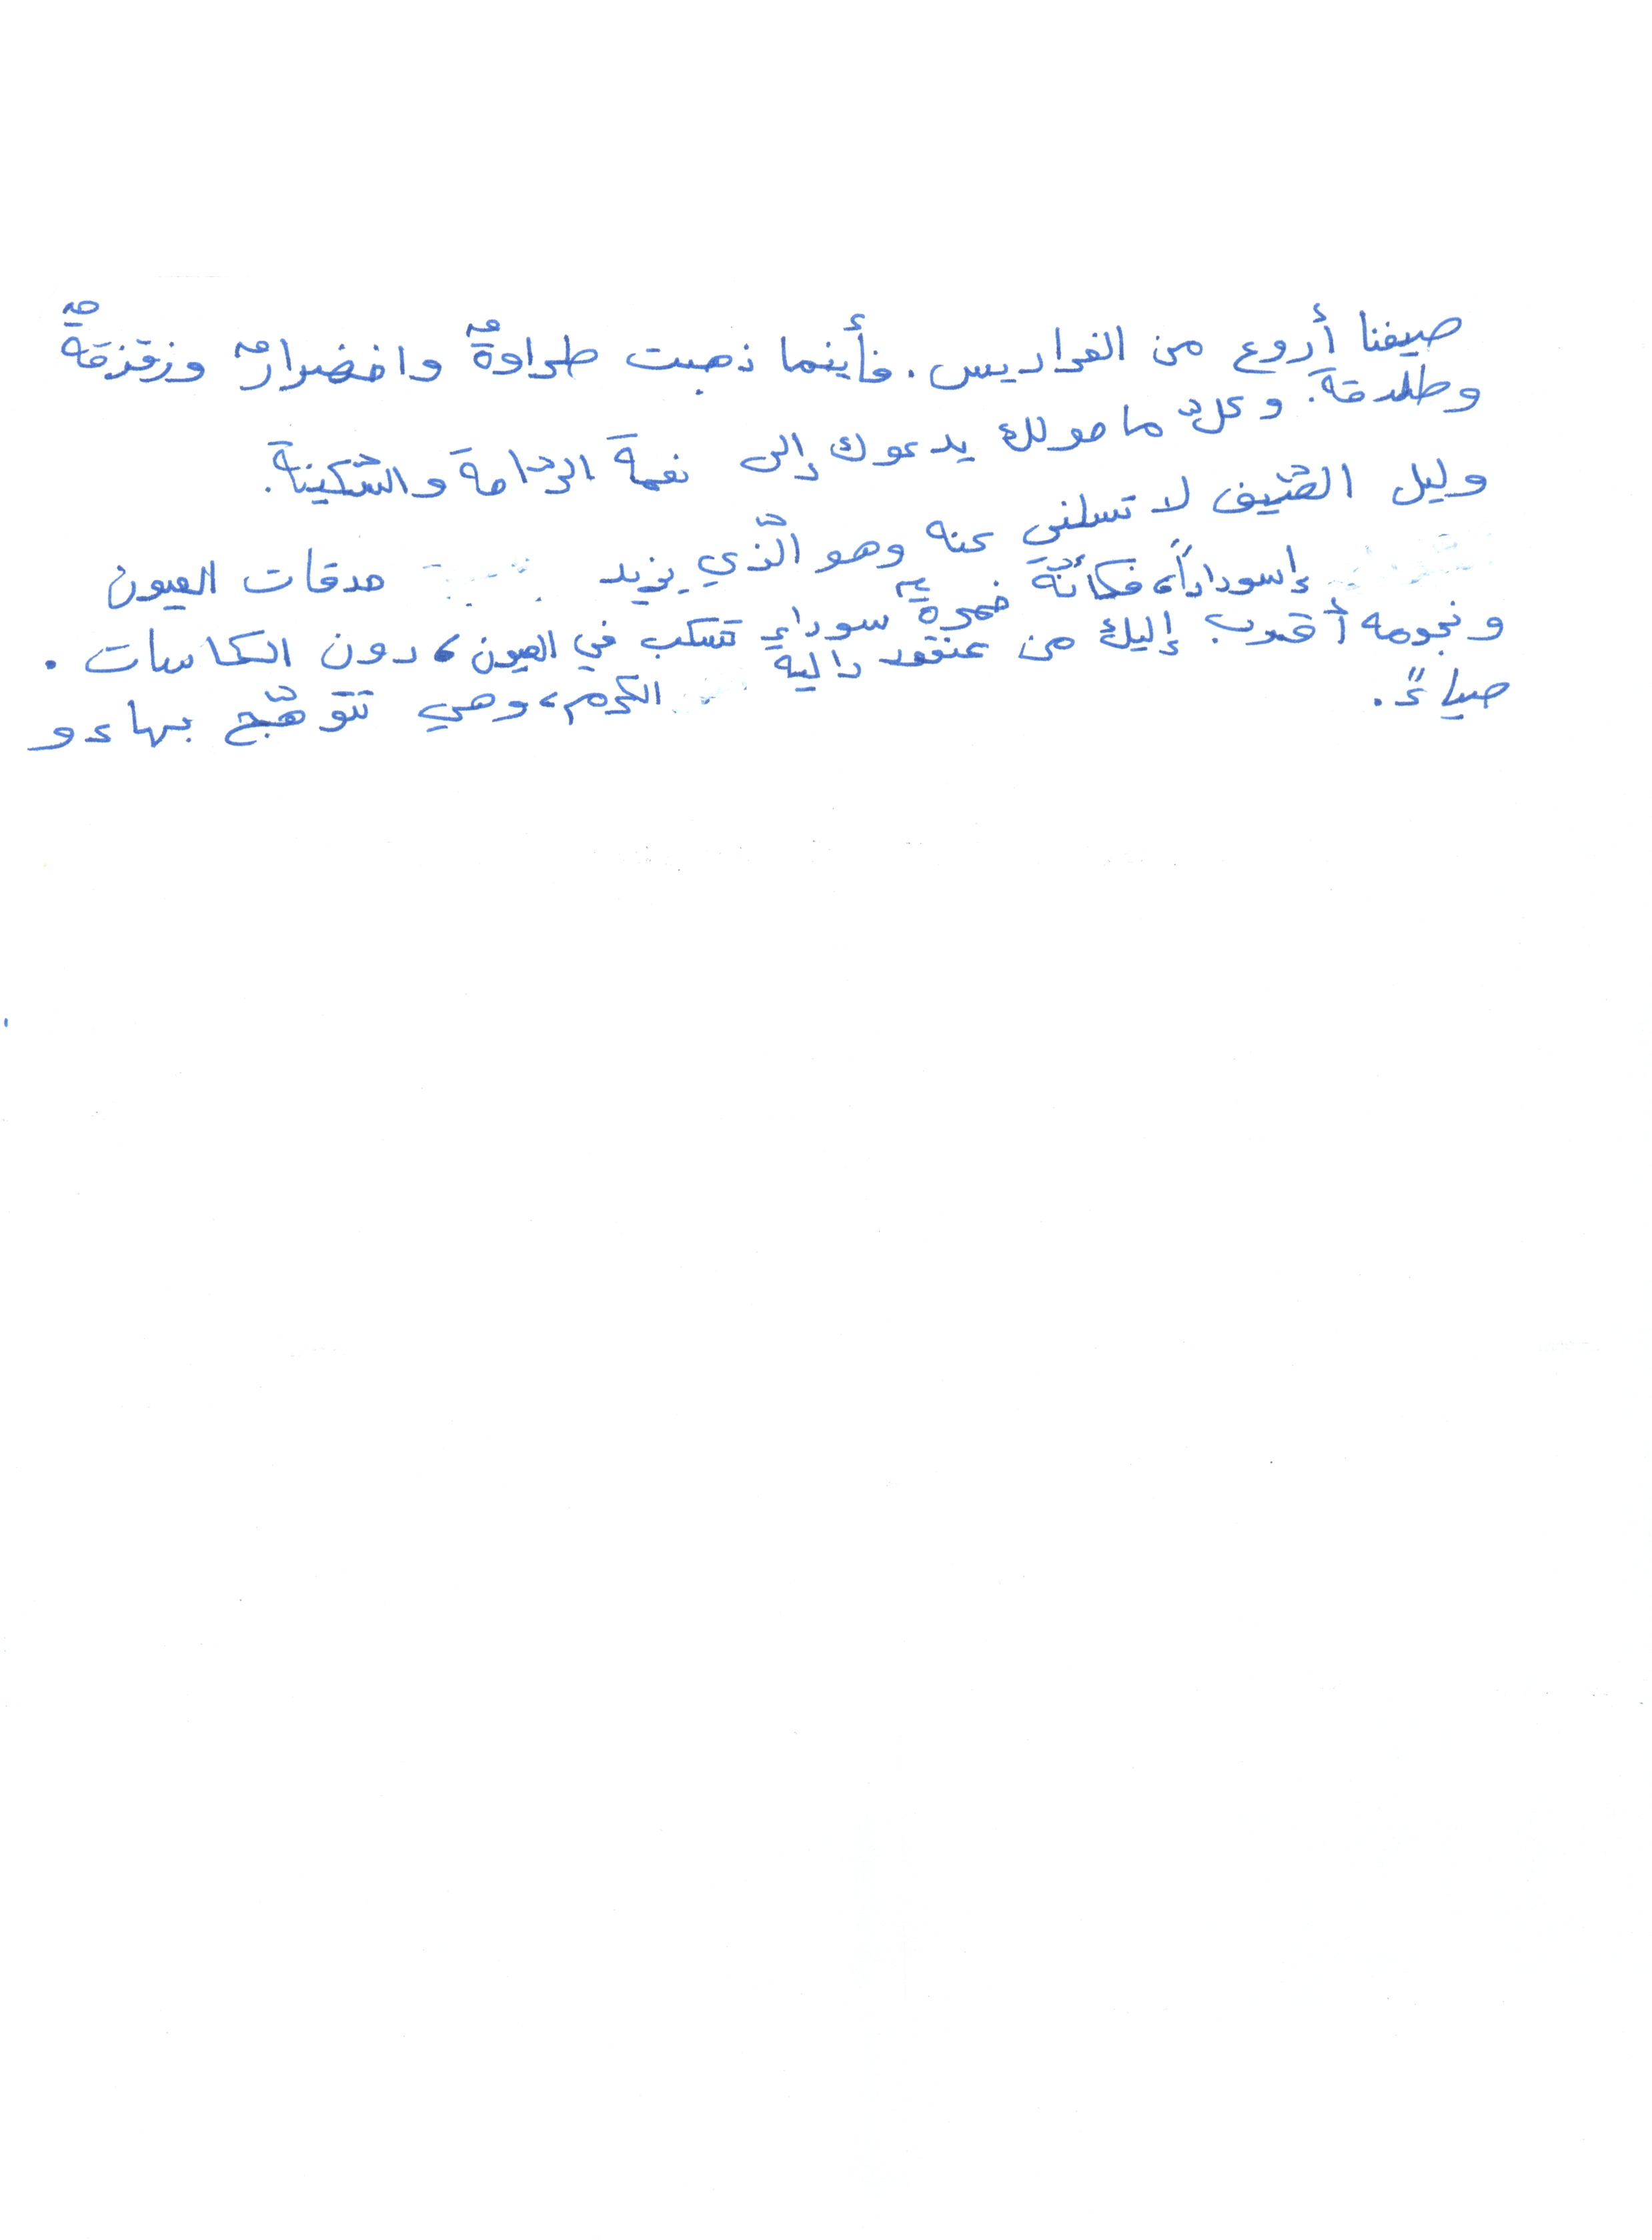 صيفنا أروع من الفراديس. فأينما ذهبت طراوةٌ واخضرارٌ وزقزقةٌ
وطلاقةَ. وكلّ ما حولك يدعوك إلى نعمةَ الرّاحةَ والسّكينةَ.
وليل الصّيف لا تسلني عنه وهو الّذي يزيد حدقات العيون
إسوداداً، فكأنّهَ خمرةٌ سوداءِ تنسكب في العيون، دون الكاسات.
ونجومه أقرب إليكَ من عنقود دالية الكرم، وهي تتوهّج بهاء و
ضياءً.